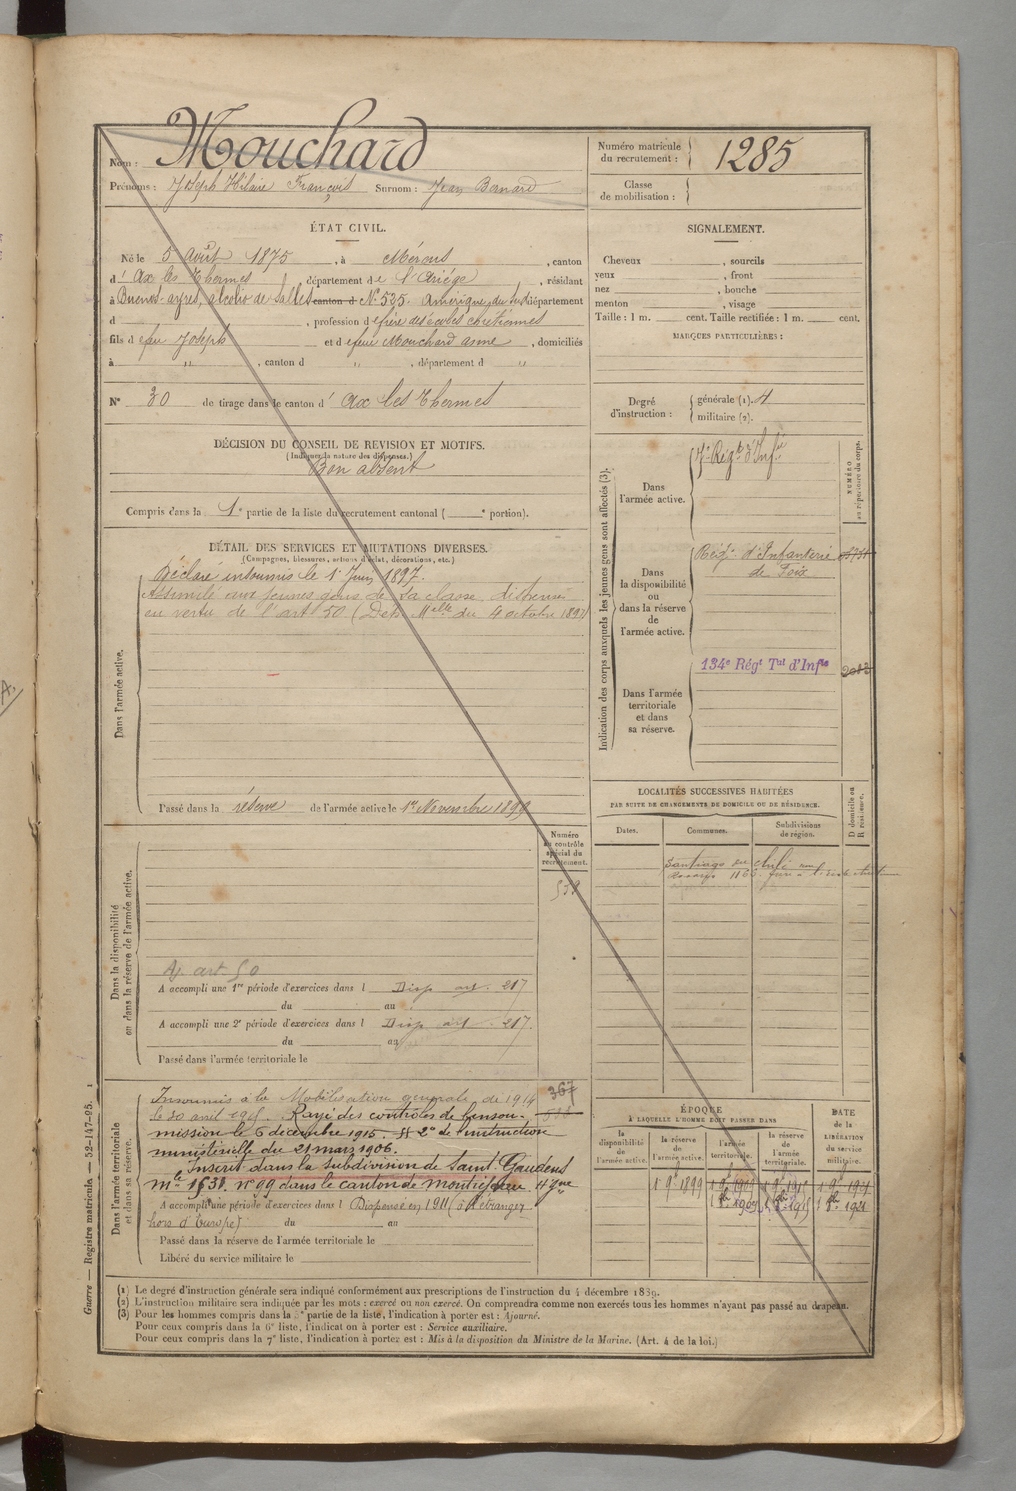 Nom : Mouchard
Prénoms : Joseph Hilaire François Surnom : Jean Bernard
Numéro matricule du recrutement : 1285
Classe de mobilisation :
ÉTAT CIVIL.
Né le 5 Août 1875, à Mérens, canton
d' Ax les Thermes, département de l'Ariège, résidant
à Buenos-ayres, calle de Salles canton d N° 535. Amérique du Sud département
d , profession de frère des écoles chrétiennes
fils de feu Joseph et de feue Mouchard anne, domiciliés
à " , canton d " , département d "
N° 30 de tirage dans le canton d' Ax les Thermes
DÉCISION DU CONSEIL DE REVISION ET MOTIFS.
(Indiquer la nature des dispenses.)
Bon absent
Compris dans la 1e partie de la liste du recrutement cantonal ( e portion).
DÉTAIL DES SERVICES ET MUTATIONS DIVERSES.
(Campagnes, blessures, actions d'éclat, décorations, etc.)
Dans l'armée active.
Déclaré insoumis le 1er Juin 1897.
Assimilé aux jeunes gens de sa classe dispensé
en vertu de l'art 50 (Dépe Melle du 4 octobre 1897)
Passé dans la réserve de l'armée active le 1er Novembre 1899
Dans la disponibilité ou dans la réserve de l'armée active.
Numéro au contrôle spécial du recrutement.
539
Aj. art 50
A accompli une 1re période d'exercices dans l Disp art. 217
du au
A accompli une 2e période d'exercices dans l Disp art. 217.
du au
Passé dans l'armée territoriale le
Dans l'armée territoriale et dans sa réserve.
Insoumis à la Mobilisation générale de 1914 367
le 30 avril 1915. Rayé des contrôles de l'insou-
mission le 6 décembre 1915. §§ 2° de l'instruction
ministérielle du 21 mars 1906.
Inscrit dans la subdivision de Saint Gaudens
mle 1538. n° 99 dans le canton de Montréjeau Hgne
A accompli une période d'exercices dans l Dispensé en 1911 (à l'étranger
hors d'Europe) du au
Passé dans la réserve de l'armée territoriale le
Libéré du service militaire le
SIGNALEMENT.
Cheveux , sourcils
yeux , front
nez , bouche
menton , visage
Taille : 1 m. cent. Taille rectifiée : 1 m. cent.
MARQUES PARTICULIÈRES :
Degré d'instruction : générale (1). 4
militaire (2).
Indication des corps auxquels les jeunes gens sont affectés (3).
NUMÉRO au répertoire du corps.
Dans l'armée active.
7e Régt d'Infie
Dans la disponibilité ou dans la réserve de l'armée active.
Régt d'Infanterie
de Foix
Dans l'armée territoriale et dans sa réserve.
134e Régt Tal d'Infie
LOCALITÉS SUCCESSIVES HABITÉES
PAR SUITE DE CHANGEMENTS DE DOMICILE OU DE RÉSIDENCE.
Dates. Communes. Subdivisions de région. D domicile ou R résidence.
Santiago du Chili
ÉPOQUE
À LAQUELLE L'HOMME DOIT PASSER DANS
la disponibilité de l'armée active. la réserve de l'armée active. l'armée territoriale. la réserve de l'armée territoriale.
DATE de la LIBÉRATION du service militaire.
1 9e 1899 1 9e 1909 1 9e 1915 1 9e 1921
1 8e 1909 1 8e 1915 1 8e 1921
(1) Le degré d'instruction générale sera indiqué conformément aux prescriptions de l'instruction du 4 décembre 1889.
(2) L'instruction militaire sera indiquée par les mots : exercé ou non exercé. On comprendra comme non exercés tous les hommes n'ayant pas passé au drapeau.
(3) Pour les hommes compris dans la 5e partie de la liste, l'indication à porter est : Ajourné.
Pour ceux compris dans la 6e liste, l'indication à porter est : Service auxiliaire.
Pour ceux compris dans la 7e liste, l'indication à porter est : Mis à la disposition du Ministre de la Marine. (Art. 4 de la loi.)
Guerre — Registre matricule. — 52-147-95. 1